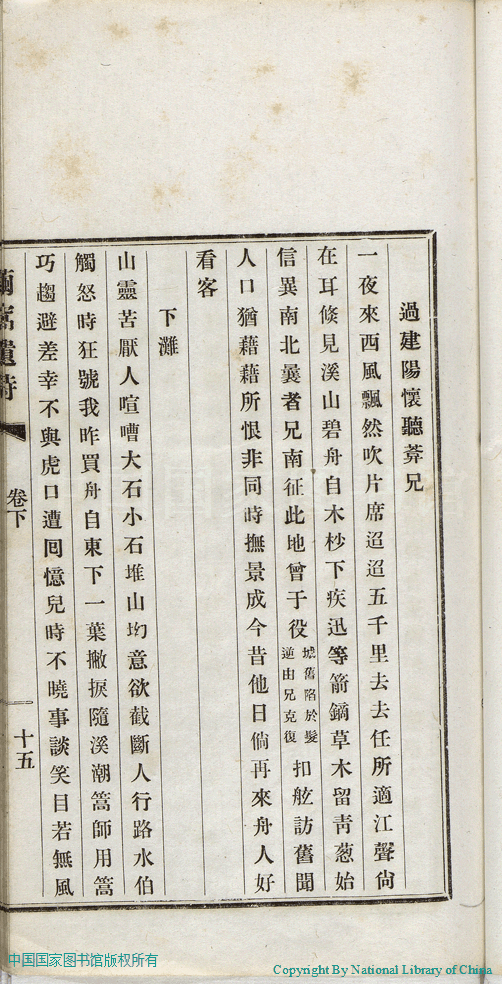 過建陽懷聽莾兄
一夜來西風飄然吹片席迢迢五千里去去任所適江聲尙
在耳倏見溪山碧舟自木杪下疾迅等箭鏑草木留靑葱始
信異南北曩者兄南征此地曾于役城舊陷於髮逆由兄克復扣舷訪舊聞
人口猶藉藉所恨非同時撫景成今昔他日倘再來舟人好
看客
下灘
山靈苦厭人喧嘈大石小石堆山坳意欲截斷人行路水伯
觸怒時狂號我昨買舟自東下一葉撇捩隨溪潮篙師用篙
巧趨避差幸不與虎口遭囘憶兒時不曉事談笑目若無風
遺詩
卷下
十五
中国国家图书馆版权所有
Copyright By National Library of China